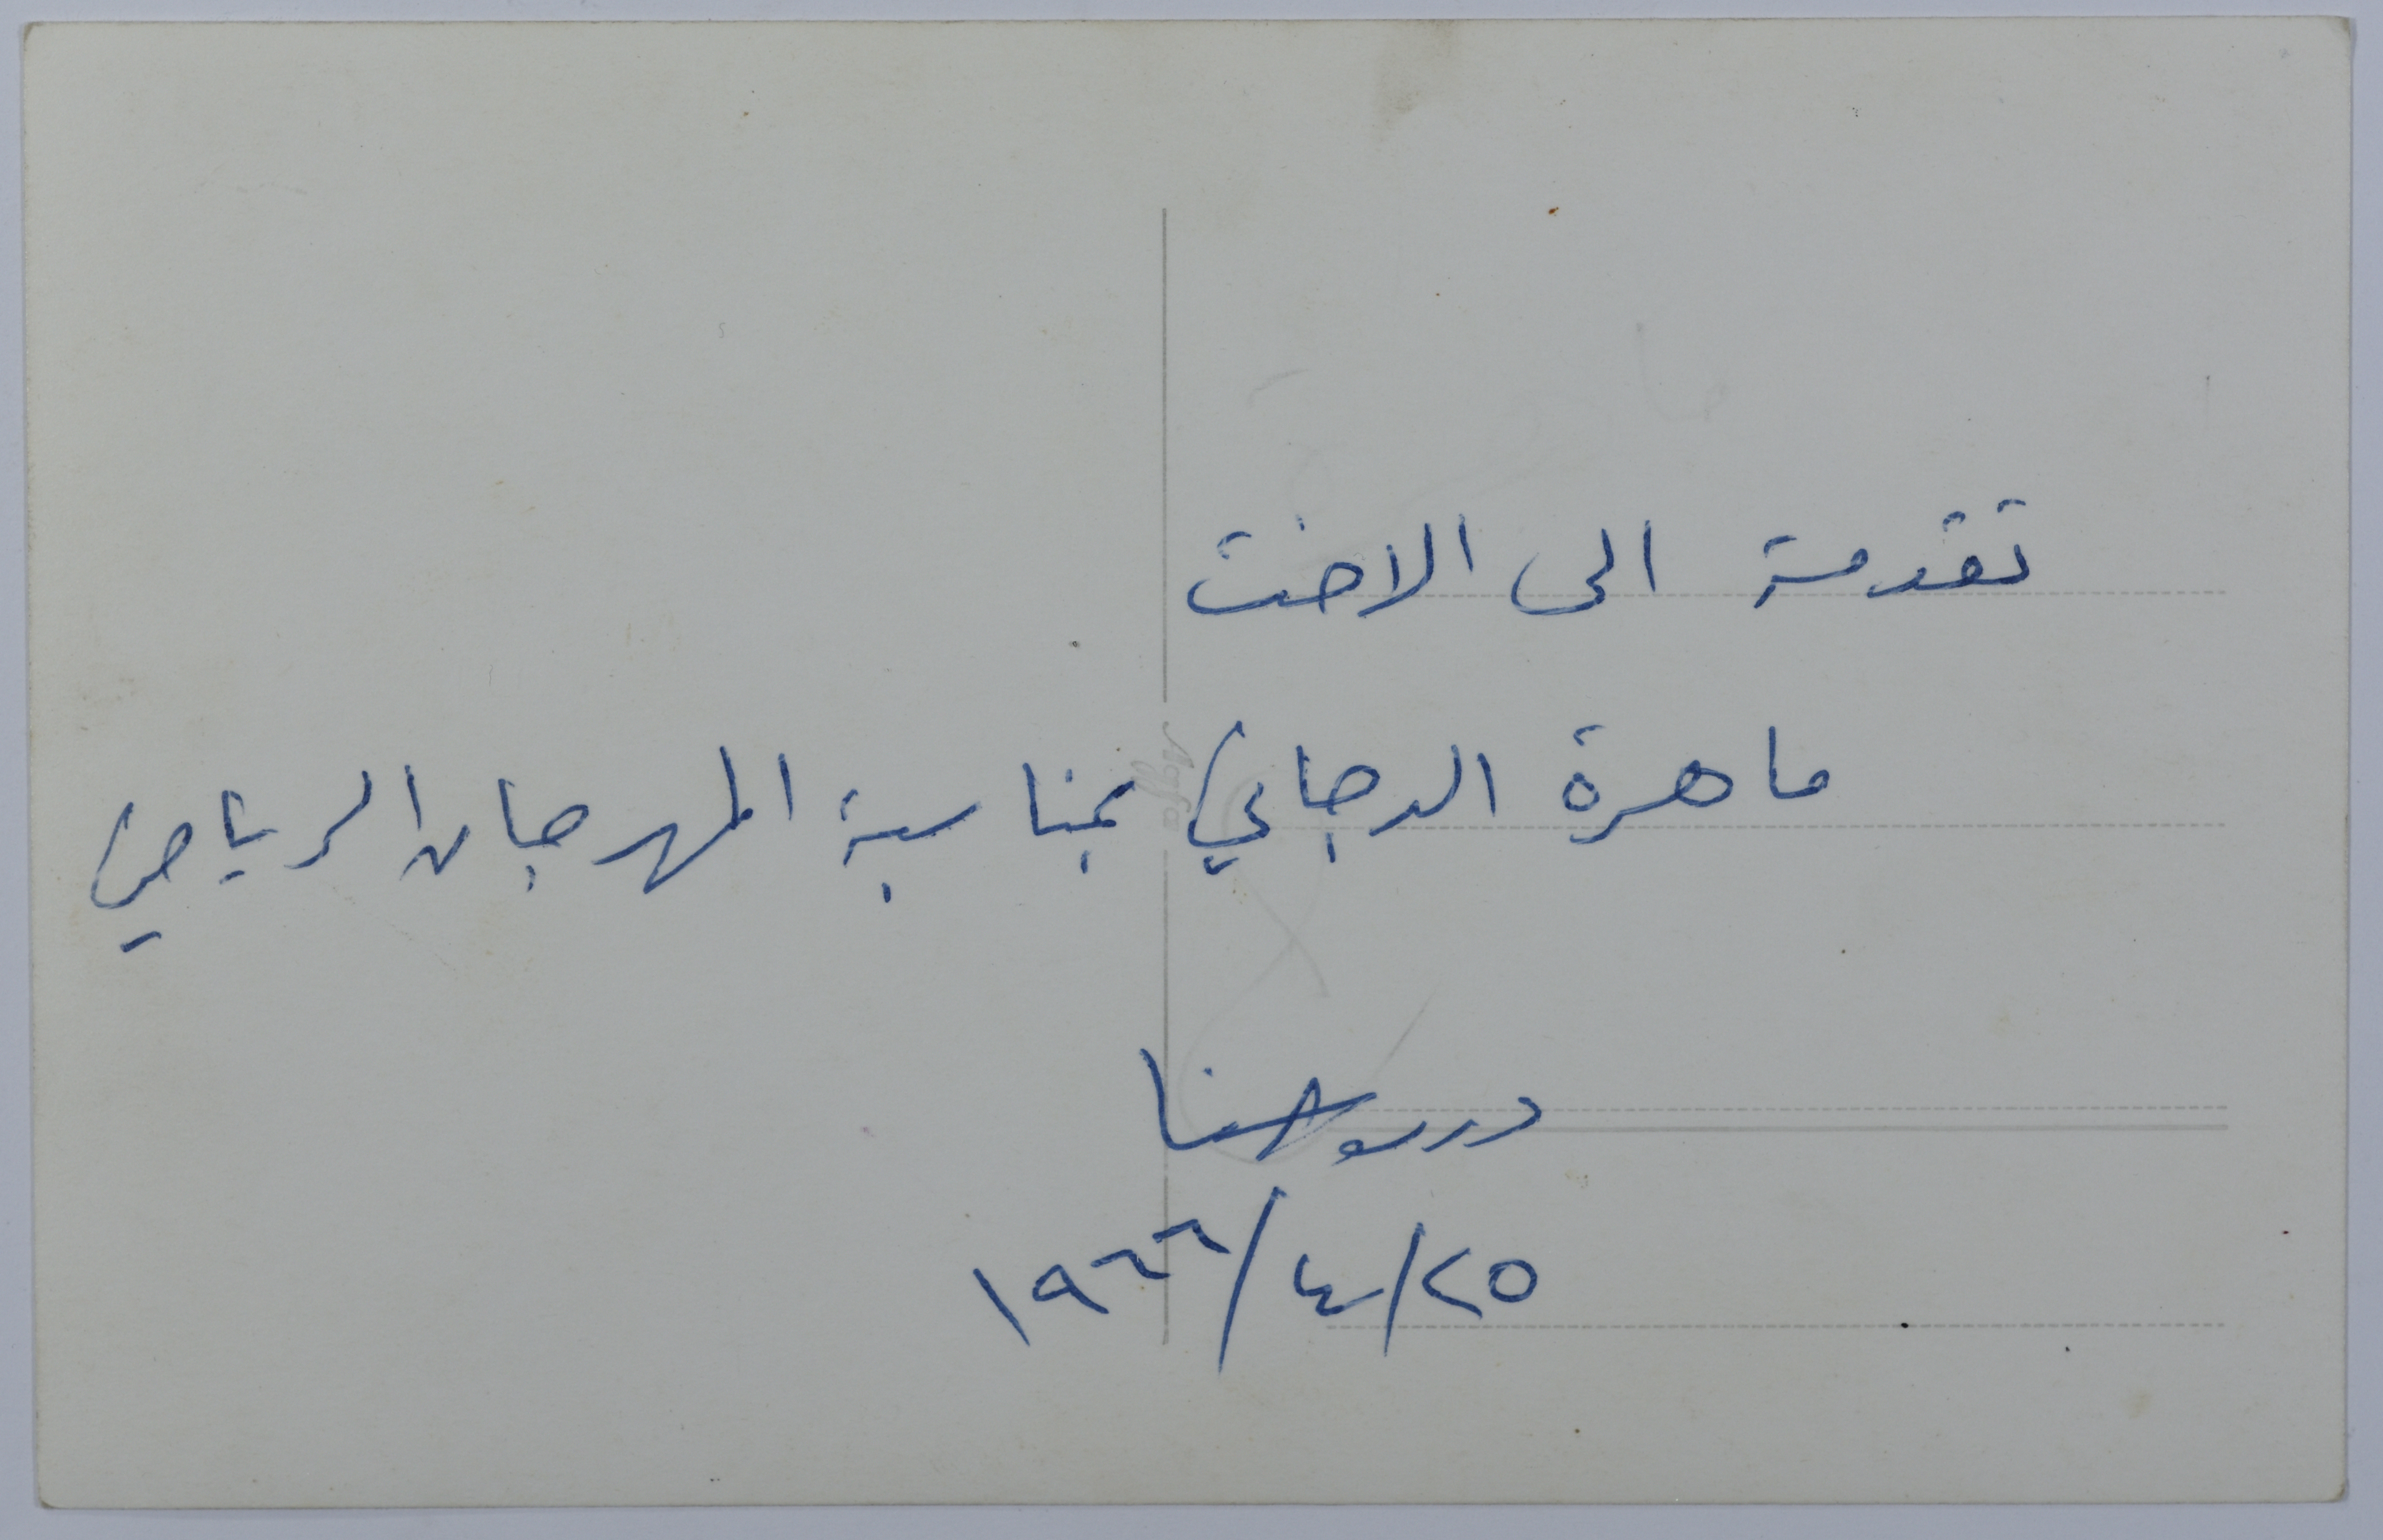 تقدمة الى الاخت
ماهرة الدجاني بمناسبة المهرجان الرياضي
حنا
٢٥/٤/١٩٦٦
Agfa